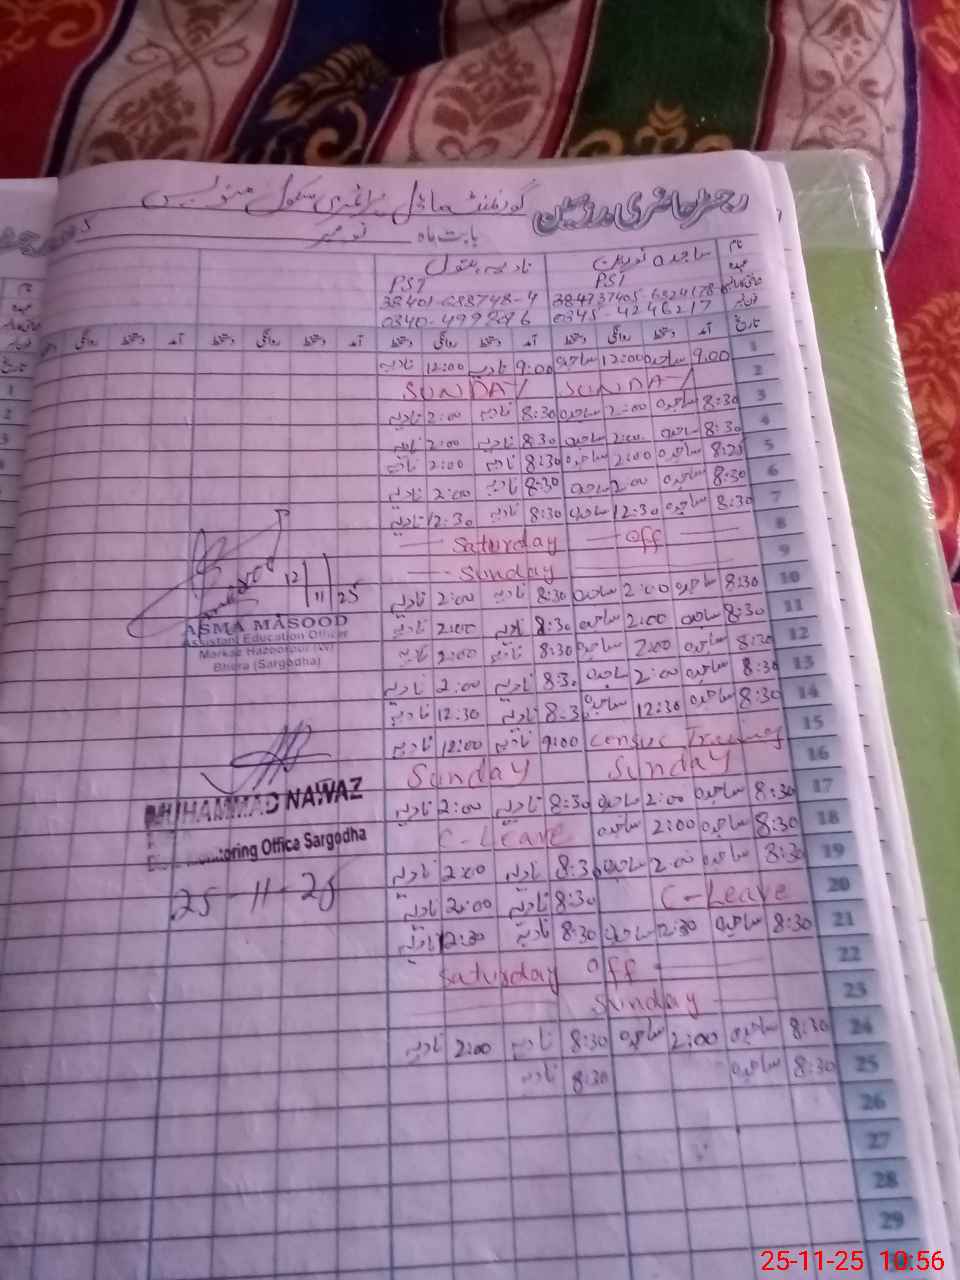 رجسٹر حاضری مدرسین گورنمنٹ ماڈل پرائمری سکول
بابت ماہ نومبر
نام ساجدہ نورین نادیہ بتول
PST PST
0345-4246217
تاریخ آمد دستخط روانگی دستخط آمد دستخط روانگی دستخط آمد دستخط روانگی دستخط آمد دستخط روانگی
1 9:00 ساجدہ 12:00 ساجدہ 9:00 نادیہ 12:00 نادیہ
2 SUNDAY SUNDAY
3 8:30 ساجدہ 2:00 ساجدہ 8:30 نادیہ 2:00 نادیہ
4 8:30 ساجدہ 2:00 ساجدہ 8:30 نادیہ 2:00 نادیہ
5 ساجدہ 2:00 ساجدہ 8:30 نادیہ 2:00 نادیہ
6 8:30 ساجدہ 2:00 ساجدہ 8:30 نادیہ 2:00 نادیہ
7 8:30 ساجدہ 12:30 ساجدہ 8:30 نادیہ 12:30 نادیہ
8 Saturday Off
9 Sunday
10 8:30 ساجدہ 2:00 ساجدہ 8:30 نادیہ 2:00 نادیہ
11 8:30 ساجدہ 2:00 ساجدہ 8:30 نادیہ 2:00 نادیہ
12 8:30 ساجدہ 2:00 ساجدہ 8:30 نادیہ 2:00 نادیہ
13 8:30 ساجدہ 2:00 ساجدہ 8:30 نادیہ 2:00 نادیہ
14 8:30 ساجدہ 12:30 ساجدہ 8:30 نادیہ 12:30 نادیہ
15 Training 9:00 نادیہ 12:00 نادیہ
16 Sunday Sunday
17 8:30 ساجدہ 2:00 ساجدہ 8:30 نادیہ 2:00 نادیہ
18 8:30 ساجدہ 2:00 ساجدہ C-Leave
19 8:30 ساجدہ 2:00 ساجدہ 8:30 نادیہ 2:00 نادیہ
20 C-Leave 8:30 نادیہ 2:00 نادیہ
21 8:30 ساجدہ 12:30 ساجدہ 8:30 نادیہ 12:30 نادیہ
22 Saturday Off
23 Sunday
24 8:30 ساجدہ 2:00 ساجدہ 8:30 نادیہ 2:00 نادیہ
25 8:30 ساجدہ 8:30 نادیہ
26
27
28
29
12/11/25
ASMA MASOOD
Assistant Education Officer
Markaz Hazoorpur (W)
Bhera (Sargodha)
MUHAMMAD NAWAZ
Monitoring Office Sargodha
25-11-25
25-11-25 10:56